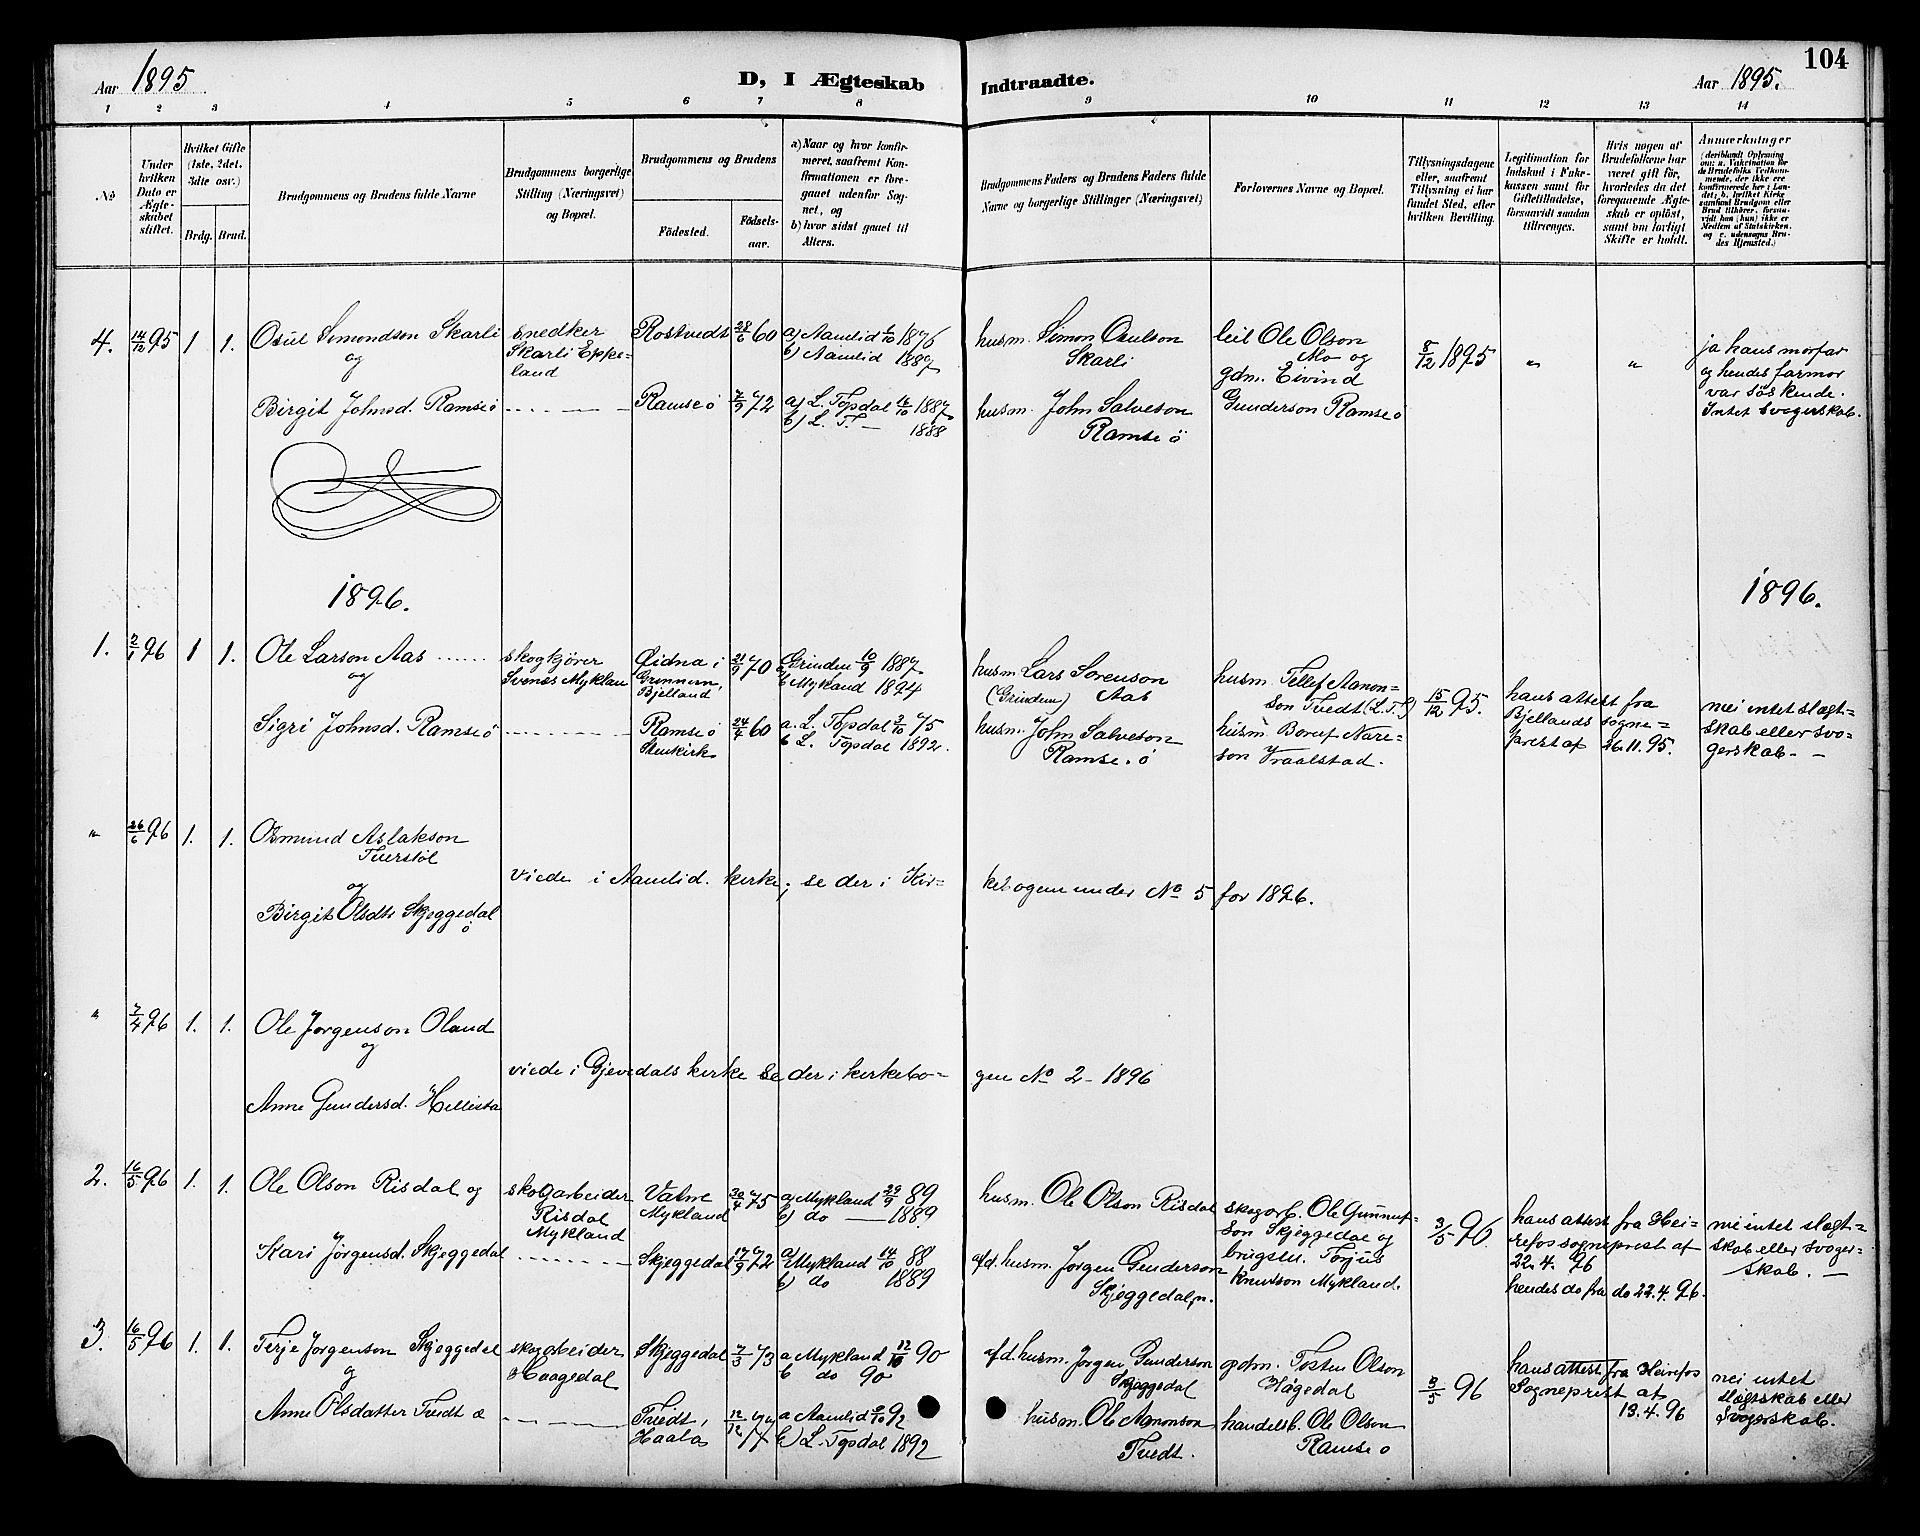 Aar 1895
D, I Ægteskab Indtraadte.
Aar 1895.
104
1 2 3 4 5 6 7 8 9 10 11 12 13 14
No
Under hvilken Dato er Ægteskabet stiftet.
Hvilket Gifte (1ste, 2det. 3dte osv.)
Brdg. Brud.
Brudgommens og Brudens fulde Navne
Brudgommens borgerlige Stilling (Næringsvei) og Bopæl.
Brudgommens og Brudens
Födested.
Födselsaar.
a) Naar og hvor konfirmeret, saafremt Konfirmationen er foregaaet udenfor Sognet, og
b) hvor sidst gaaet til Alters.
Brudgommens Faders og Brudens Faders fulde Navne og borgerlige Stillinger (Næringsvei)
Forlovernes Navne og Bopæl.
Tillysningsdagene eller, saafremt Tillysning ei har fundet Sted, efter hvilken Bevilling.
Legitimation for Indskud i Enkekassen samt for Giftetilladelse, forsaavidt saadan tiltrænges.
Hvis nogen af Brudefolkene har været gift før, hvorledes da det foregaaende Ægteskab er oplöst, samt om lovligt Skifte er holdt.
Anmærkninger
4. 14/12 95 1 1. Osul Simondson Skarli
og
Birgit Johnsd. Ramse ö
snedker
Skarli Eppeland
Rostvedt 28/6 60
Ramse ö 7/9 72
a) Aamlid 1/10 1876
b) Aamlid 1887
a) L. Topdal 16/10 1887
b) L. T. — 1888
husm. Simon Osulson
Skarli
husm. John Salveson
Ramse ö
leil Ole Olson
Mo og
gdm. Eivind
Gunderson Ramse ö
8/12 1895
"
"
ja hans morfar
og hendes farmor
var söskende.
Intet Svogerskab.
1896.
1896.
1. 2/1 96 1 1. Ole Larson Aas
og
Sigri Johnsd. Ramse ö
skogkjörer
Svenes Myklan
Öidna i
Grinnem,
Bjelland 21/9 70
Ramse ö
Stenkirk 24/4 60
a) Grinden 10/9 1887
b Mykland 1894
a. L. Topdal 3/10 75
b L. Topdal 1892.
husm Lars Sorenson
(Grindem) Aas
husm. John Salveson
Ramse. ö
husm. Tellef Aanonson
Tvedt (L. T.)
husm Boruf Aareson
Vraalstad.
15/12 95.
hans attest fra
Bjellands sogneprest
af 26.11.95.
nei intet slegtskab
eller svogerskab. —
" 26/6 96 1. 1. Osmund Aslakson
Tverstöl
og
Birgit Olsdtr Skjeggedal
ö
viede i Aamlid. kirke; se der i Kirkebogen
under No 5 for 1896.
" 7/4 96 1. 1. Ole Jorgenson Oland
og
Anne Gundersd. Hellista
viede i Gjevedals kirke se der i kirkebogen
No 2 - 1896
2. 16/5 96 1. 1. Ole Olson Risdal og
Kari Jörgensd. Skjeggedal
skogarbeider
Risdal
Mykland
Vatne
Mykland 30/4 75
Skjeggedal 17/9 72
a) Mykland 29/9 89
b) do — 1889
a) Mykland 14/10 88
b) do 1889
husm. Ole Olson Risdal
afd. husm. Jorgen Gunderson
Skjeggedal n.
skogarb. Ole Gunnufson
Skjeggedal og
brugstn. Torjus
Knutson Mykland.
3/5 96.
hans attest fra Heirefos
sogneprest af
22.4.96
hendes do fra do 22.4.96.
nei intet slægtskab
eller svogerskab.
—
3. 16/5 96 1. 1. Terje Jorgenson Skjeggedal
og
Anne Olsdatter Tvedt ö
skogarbeider
Haagedal
Skjeggedal 7/3 73
Tvedt,
Haalo 12/12 77
a Mykland 12/10 90
b do 90
a Aamlid 9/10 92
b) L. Topdal 1892
afd. husm. Jorgen Gunderson
Skjeggedal
husm. Ole Aanonson
Tvedt.
gdm. Tosten Olson
Högedal
handelsb. Ole Olson
Ramse ö
3/5 96
hans attest fra Heirefos
Sogneprest af
13.4.96
nei intet
slægtskab eller
Svogerskab.